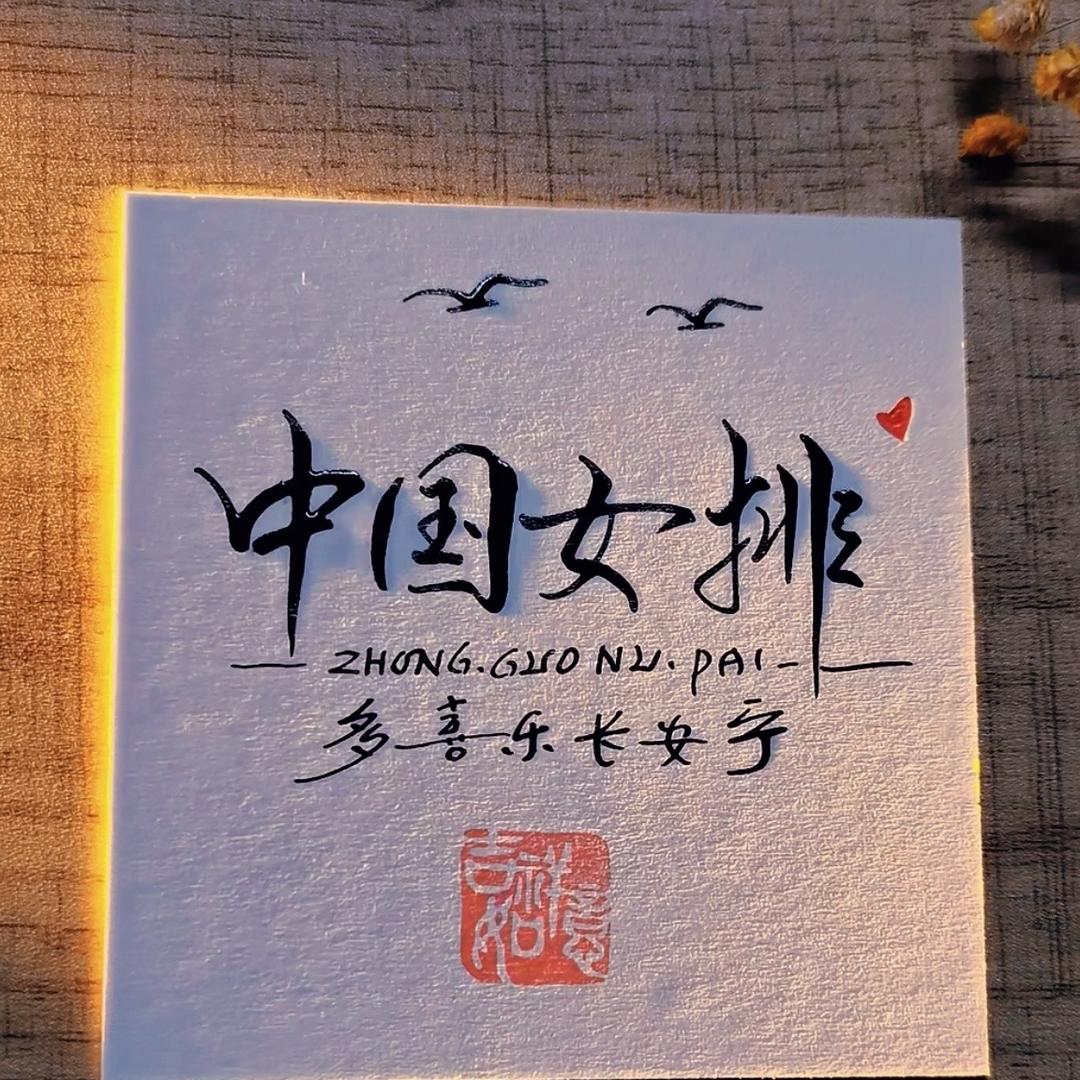 中国女排
ZHONG.GUO NU.PAI
多喜乐长安宁
吉祥如意